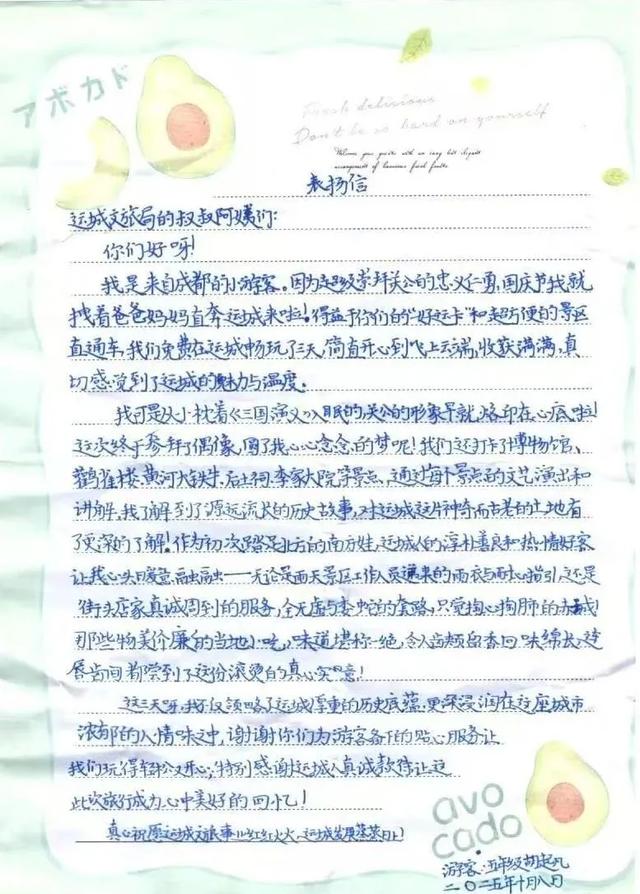 アボカド
Fresh delicious
Don't be so hard on yourself
表扬信
运城文旅局的叔叔阿姨们:
你们好呀!
我是来自成都的小游客。因为超级崇拜关公的忠义仁勇,国庆节我就
拽着爸爸妈妈直奔运城来啦!得益于你们的“好运卡”和超方便的景区
直通车,我们免费在运城畅玩了三天,简直开心到飞上云端,收获满满,真
切感受到了运城的魅力与温度。
我可是从小枕着《三国演义》入眠的,关公的形象早就烙印在心底啦!
这次终于参拜了偶像,圆了我心心念念的梦呢!我们还打卡了博物馆、
鹳雀楼、黄河大铁牛、后土祠、李家大院等景点,通过每个景点的文艺演出和
讲解,我了解到了源远流长的历史故事,对运城这片神奇而古老的土地有
了更深的了解!作为初次踏足北方的南方娃,运城人的淳朴善良和热情好客
让我心头暖融融——无论是雨天景区工作人员递来的雨衣与耐心指引,还是
街头店家真诚周到的服务,全无虚与委蛇的套路,只觉掏心掏肺的赤诚!
那些物美价廉的当地小吃,味道堪称一绝,令人齿颊留香回味绵长,连
唇齿间都尝到了这份滚烫的真心实意!
这三天呀,我不仅领略了运城厚重的历史底蕴,更深浸润在这座城市
浓郁的人情味之中,谢谢你们为游客备下的贴心服务让
我们玩得轻松又开心,特别感谢运城人真诚款待让这
此次旅行成为心中美好的回忆!
真心祝愿运城文旅事业红红火火,运城发展蒸蒸日上!
avo
cado
游客:五年级胡 凡
二〇二五年十月八日